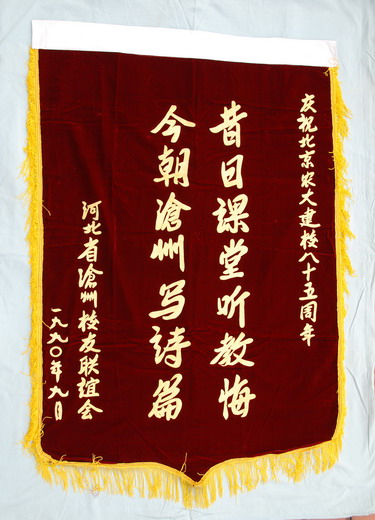 庆祝北京农大建校八十五周年
昔日课堂听教悔
今朝滄州写诗篇
河北省滄州校友联谊会
一九九〇年九月